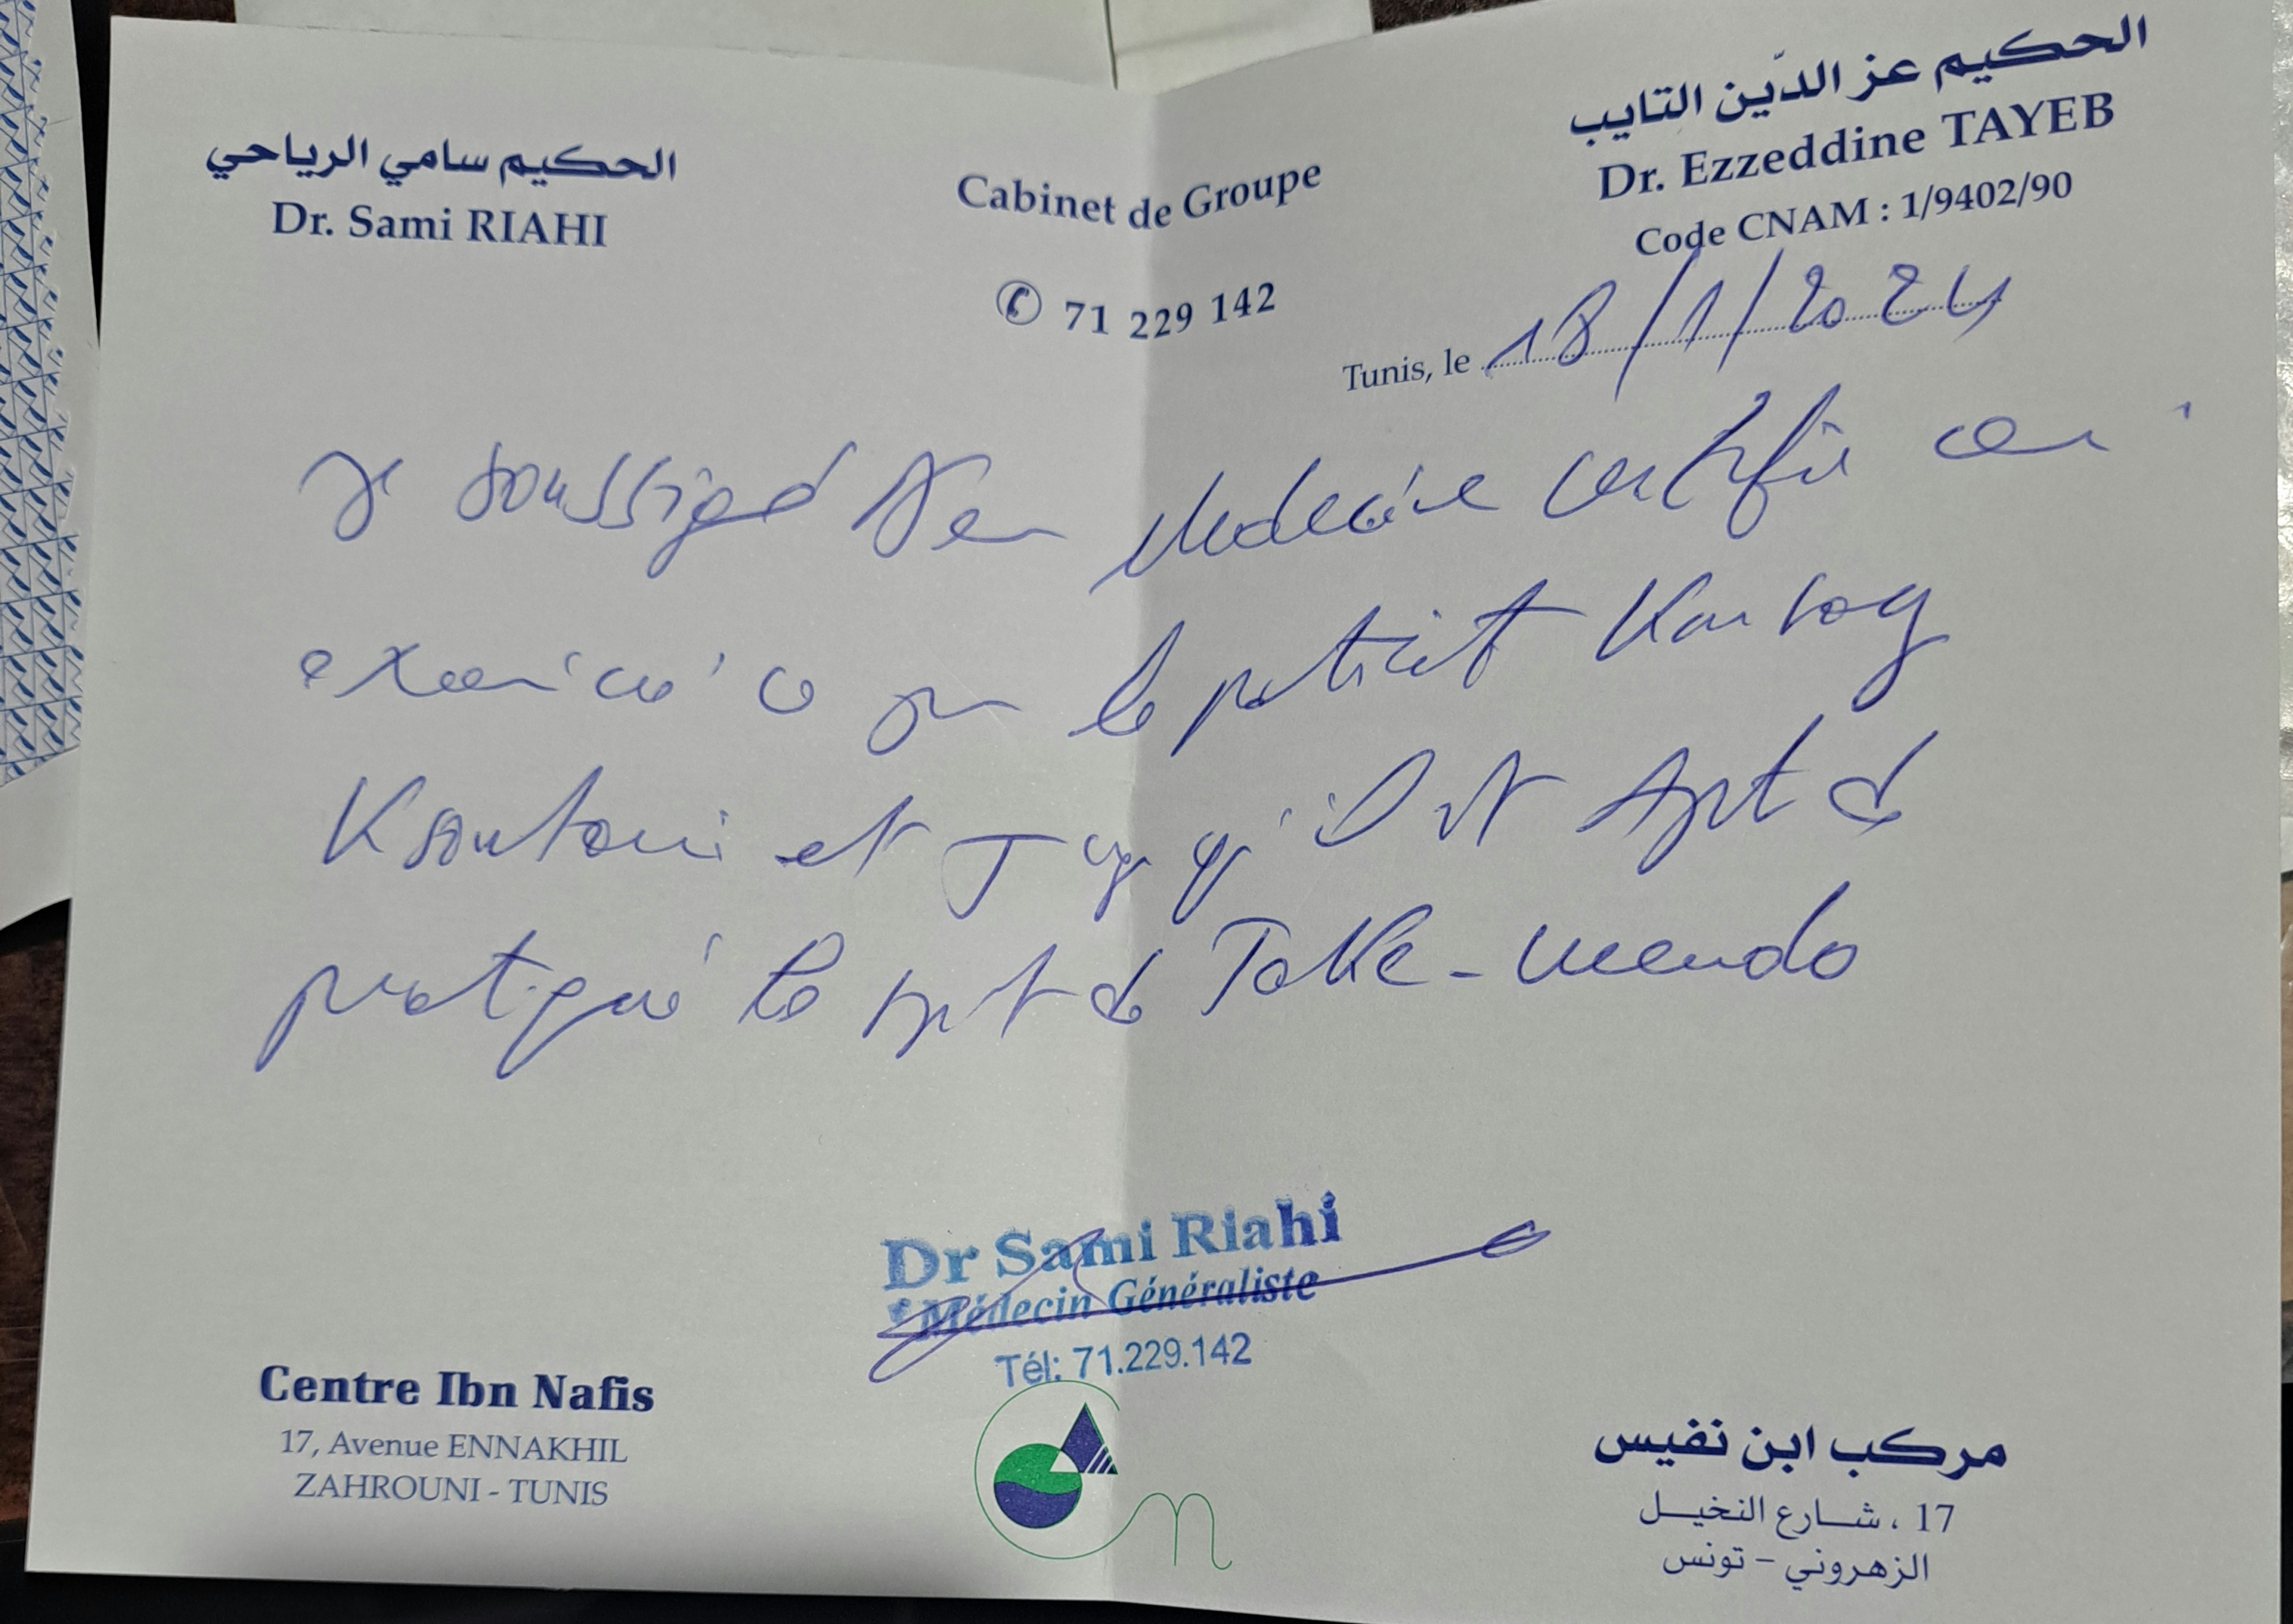 الحكيم سامي الرياحي
Dr. Sami RIAHI
Cabinet de Groupe
✆ 71 229 142
الحكيم عز الدّين التايب
Dr. Ezzeddine TAYEB
Code CNAM : 1/9402/90
Tunis, le 18/1/2024
Je soussigné Dr en Medecine certifie avoir
examiné ce jour le patient
Ksontini et qu'il est Apt de
pratiqué le sport de Take-wendo
Dr Sami Riahi
Médecin Généraliste
Tél: 71.229.142
Centre Ibn Nafis
17, Avenue ENNAKHIL
ZAHROUNI - TUNIS
مركب ابن نفيس
17 ، شارع النخيل
الزهروني - تونس